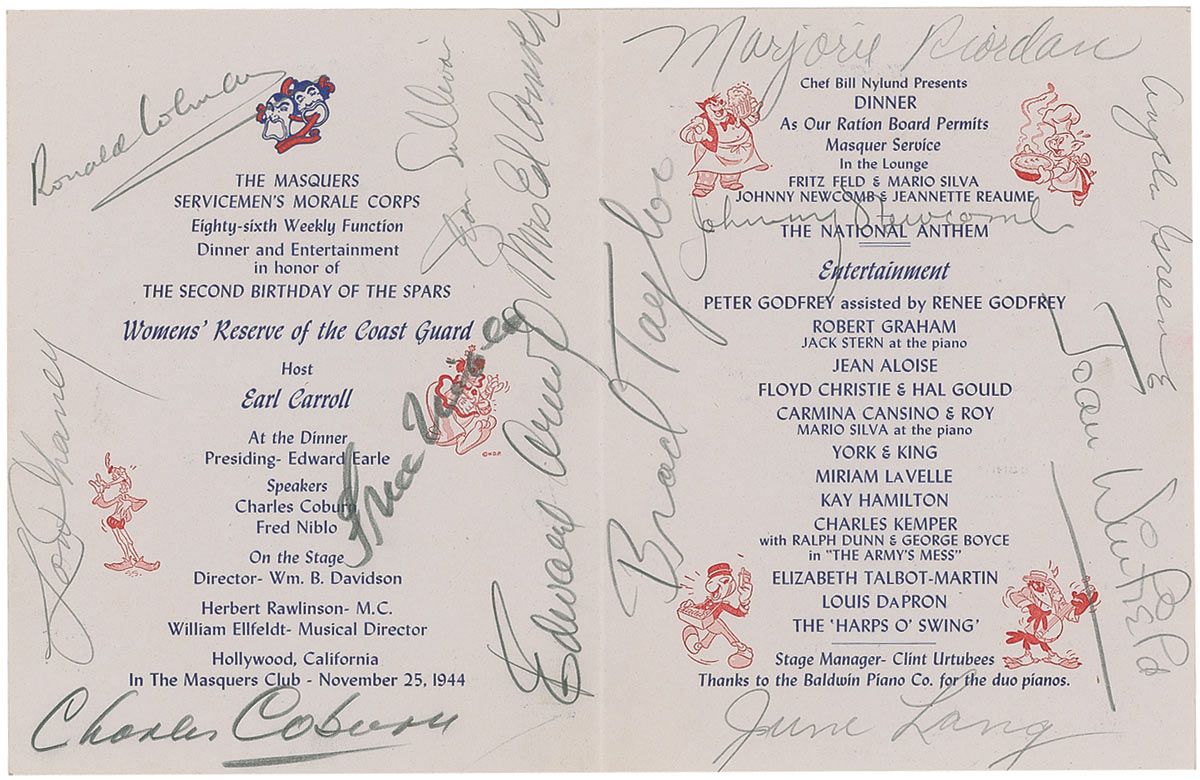 Ronald Colman
THE MASQUERS
SERVICEMEN'S MORALE CORPS
Eighty-sixth Weekly Function
Dinner and Entertainment
in honor of
THE SECOND BIRTHDAY OF THE SPARS
Womens' Reserve of the Coast Guard
Host
Earl Carroll
At the Dinner
Presiding- Edward Earle
Speakers
Charles Coburn
Fred Niblo
On the Stage
Director- Wm. B. Davidson
Herbert Rawlinson- M.C.
William Ellfeldt- Musical Director
Hollywood, California
In The Masquers Club - November 25, 1944
Charles Coburn
Sullivan
Mrs Ed Arnold
Edward Arnold
©W.D.P.
Marjorie Riordan
Chef Bill Nylund Presents
DINNER
As Our Ration Board Permits
Masquer Service
In the Lounge
FRITZ FELD & MARIO SILVA
JOHNNY NEWCOMB & JEANNETTE REAUME
Johnny Newcomb
THE NATIONAL ANTHEM
Entertainment
PETER GODFREY assisted by RENEE GODFREY
ROBERT GRAHAM
JACK STERN at the piano
JEAN ALOISE
FLOYD CHRISTIE & HAL GOULD
CARMINA CANSINO & ROY
MARIO SILVA at the piano
YORK & KING
MIRIAM LAVELLE
KAY HAMILTON
CHARLES KEMPER
with RALPH DUNN & GEORGE BOYCE
in "THE ARMY'S MESS"
ELIZABETH TALBOT-MARTIN
LOUIS DAPRON
THE 'HARPS O' SWING'
Stage Manager- Clint Urtubees
Thanks to the Baldwin Piano Co. for the duo pianos.
June Lang
Brad Taylor
Angela Greene
Joan Winfield